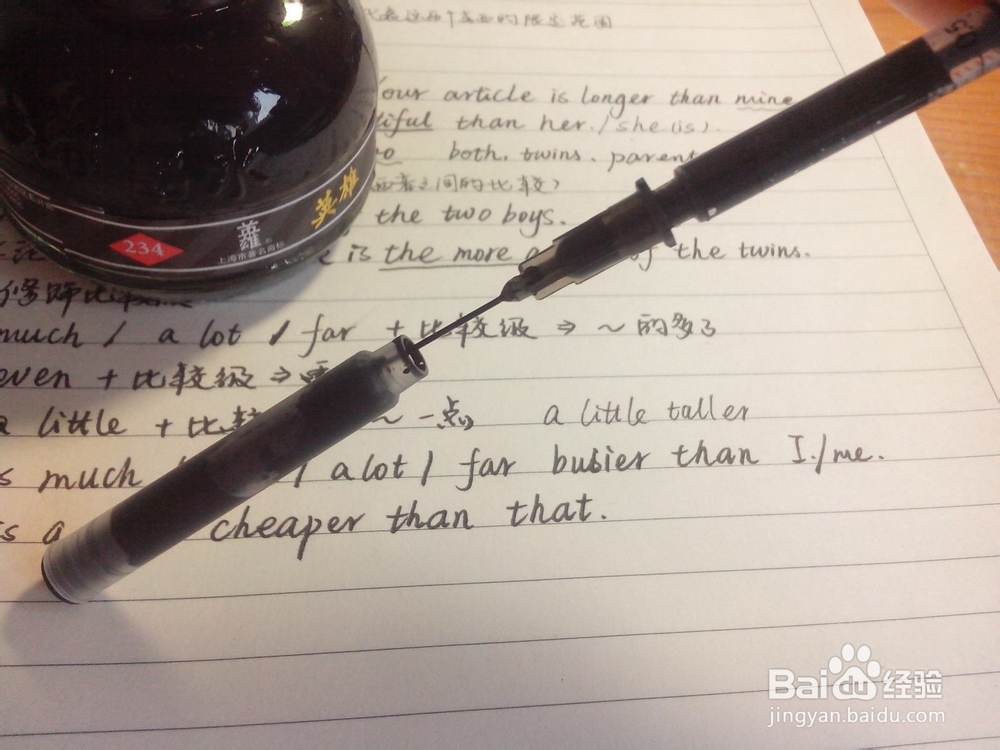 比较这两个东西的限定范围
Your article is longer than mine
tiful than her./she(is).
both. twins. parent
两者之间的比较)
the two boys.
is the more of the twins.
修饰比较级
much / a lot / far + 比较级 ⇒ ~的多了
even + 比较级 ⇒
a little + 比较 ~一点 a little taller
s much / a lot / far busier than I./me.
s a cheaper than that.
234
英雄
上海市著名商标
50
Baidu经验
jingyan.baidu.com